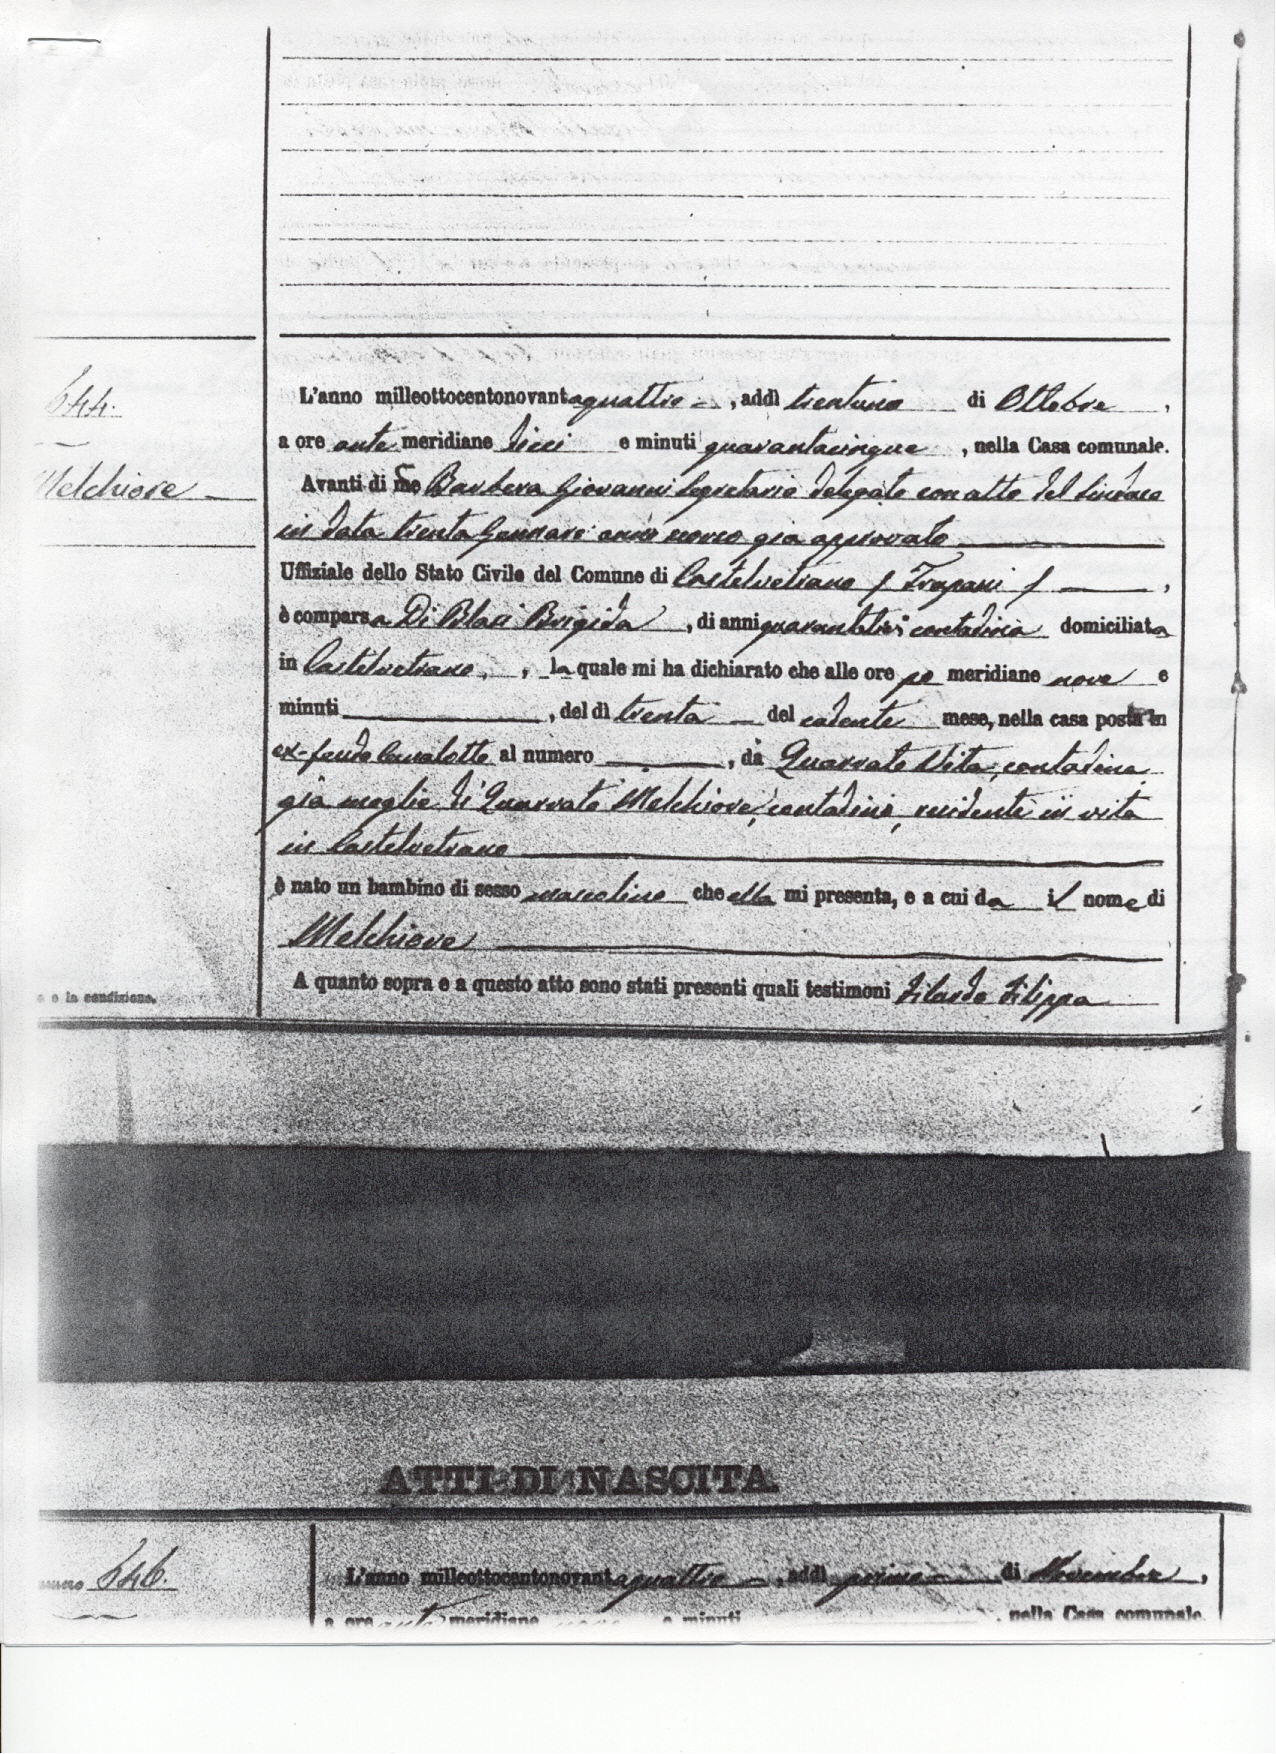 644.
Melchiore
L'anno milleottocentonovantaquattro, addì trentuno di Ottobre,
a ore ante meridiane dieci e minuti quarantacinque, nella Casa comunale.
Avanti di me Barbera Giovanni Segretario delegato con atto del Sindaco
in data trenta Gennaro anno scorso già approvato
Uffiziale dello Stato Civile del Comune di Castelvetrano (Trapani),
è comparsa Di Blasi Brigida, di anni quarantatre, contadina domiciliata
in Castelvetrano, la quale mi ha dichiarato che alle ore po meridiane nove e
minuti, del dì trenta del cadente mese, nella casa posta in
ex-feudo al numero, da Quarrato Vita, contadina
già moglie di Quarrato Melchiore, contadino, residente in vita
in Castelvetrano
è nato un bambino di sesso mascolino che ella mi presenta, e a cui da il nome di
Melchiore
a o la condizione.
A quanto sopra e a questo atto sono stati presenti quali testimoni Filardo Filippo
ATTI DI NASCITA
Numero 646.
L'anno milleottocentonovantaquattro, addì primo di Novembre,
a ore ante meridiane e minuti, nella Casa comunale.